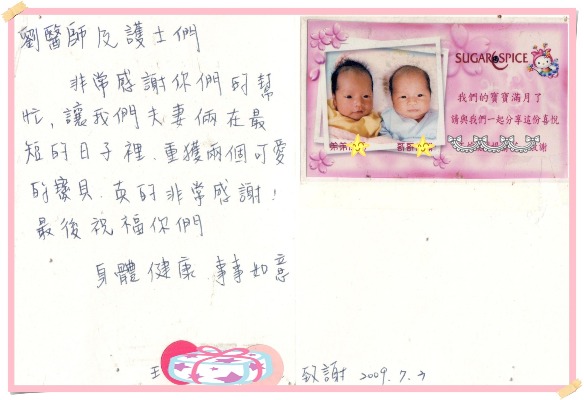 劉醫師及護士們
非常感謝你們的幫
忙,讓我們夫妻倆在最
短的日子裡.重獲兩個可愛
的寶貝.真的非常感謝!
最後祝福你們
身體健康 事事如意
王
致謝 2009.7.7
SUGAR SPICE
我們的寶寶滿月了
請與我們一起分享這份喜悅
敬謝
弟弟
哥哥